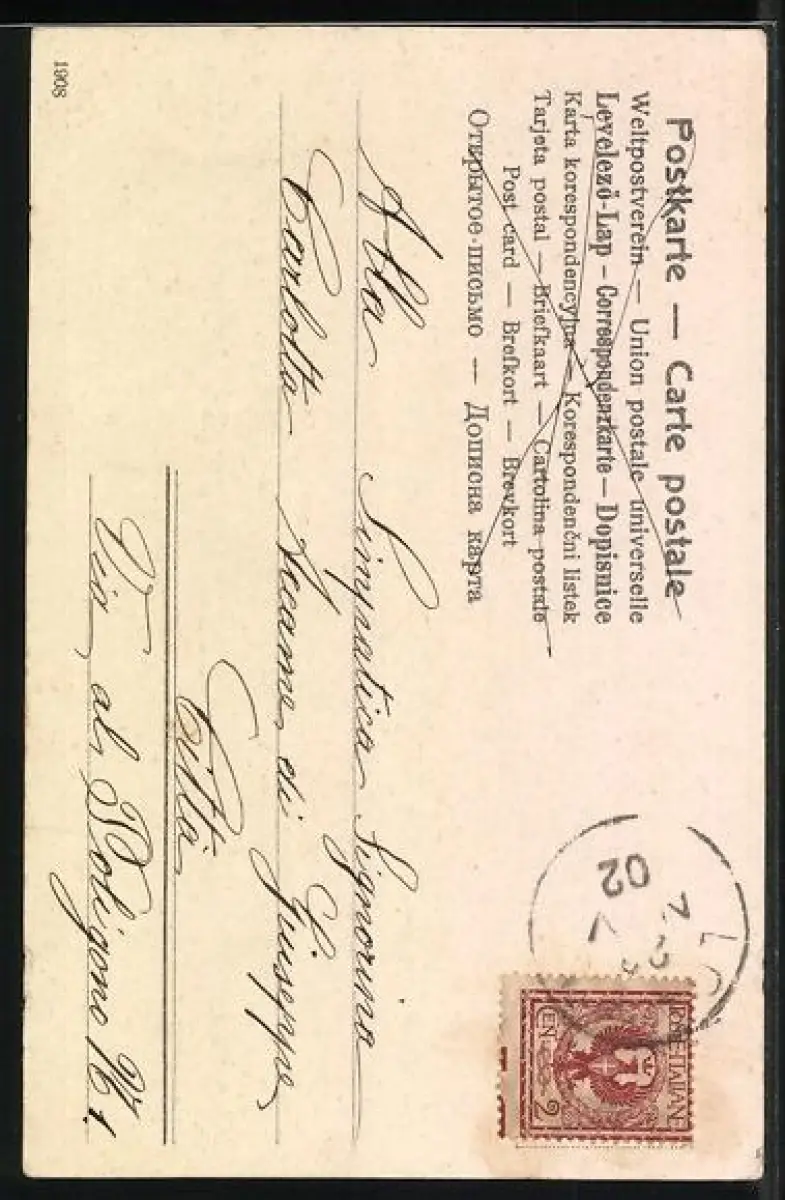 Postkarte — Carte postale
Weltpostverein — Union postale universelle
Levelező-Lap – Correspondenzkarte – Dopisnice
Karta korespondencyjna – Korespondenční listek
Tarjeta postal — Briefkaart — Cartolina postale
Post card — Brefkort — Brevkort
Открытое письмо — Дописна карта
02
POSTE-ITALIANE
CEN 2
Alla Simpatica Signorina
Carlotta Accame di Giuseppe
Città
Via al Poligono N. 1.
1908